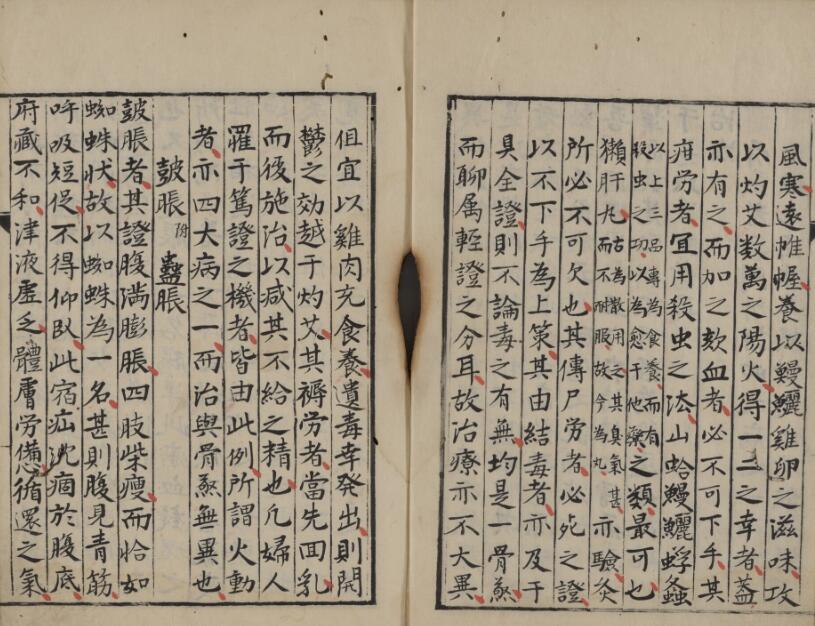 風寒遠帷幄養以鰻鱺雞卵之滋味攻
以灼艾数萬之陽火得一二之幸者蓋
亦有之而加之欬血者必不可下手其
疳労者宜用殺虫之法山蛤鰻鱺蜉螽
以上三品專為食養而有
殺虫之功以為愈于他藥之類最可也
獺肝丸古為散用之其臭氣甚
而不耐服故今為丸亦驗灸
所必不可欠也其傳尸労者必死之證
以不下手為上策其由結毒者亦及于
具全證則不論毒之有無均是一骨蒸
而聊属輕證之分耳故治療亦不大異
但宜以雞肉充食養遺毒幸発出則開
鬱之効越于灼艾其褥労者當先回乳
而後施治以减其不給之精也凡婦人
罹于篤證之機者皆由此例所謂火動
者亦四大病之一而治與骨蒸無異也
鼓脹附蠱脹
鼓脹者其證腹満膨脹四肢柴瘦而恰如
蜘蛛状故以蜘蛛為一名甚則腹見青筋
呼吸短促不得仰臥此宿疝沈痼於腹底
府藏不和津液虛乏體膚労憊循還之氣